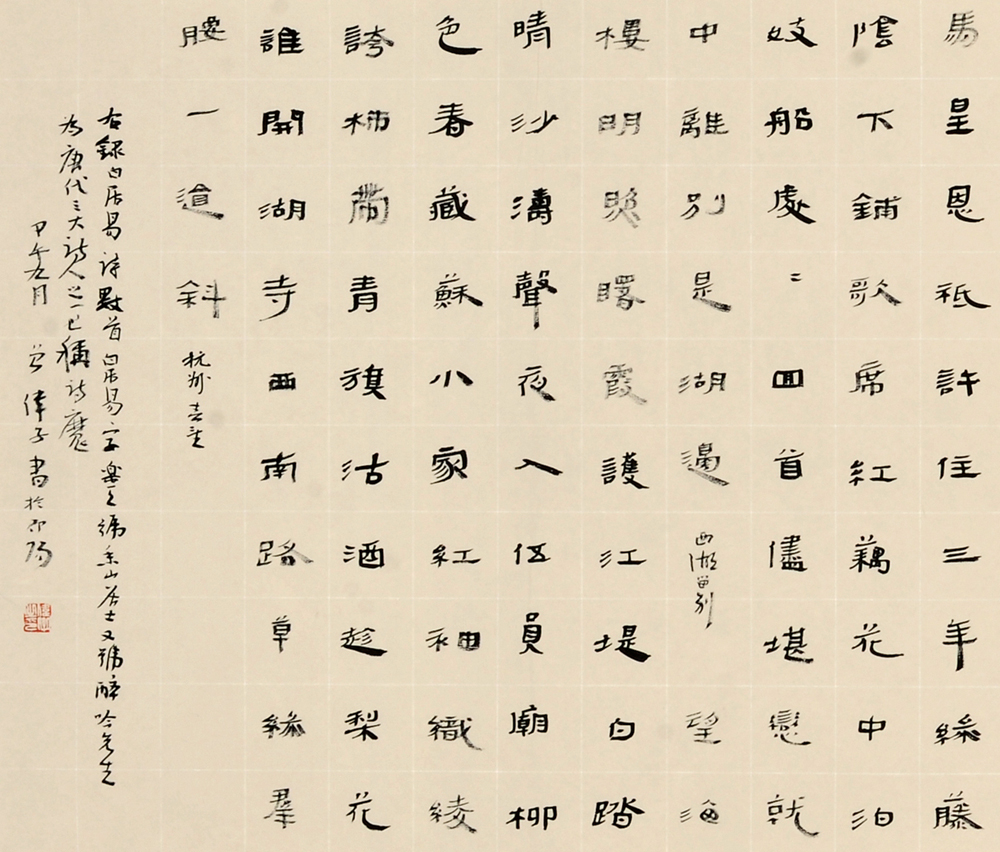 馬皇恩祇許住三年綠藤
陰下鋪歌席紅藕花中泊
妓船處〻回首儘堪戀就
中離別是湖邊 西湖留別 望海
樓明照曙霞護江堤白踏
晴沙濤聲夜入伍員廟柳
色春藏蘇小家紅袖織綾
誇柿帶青旗沽酒趁梨花
誰開湖寺西南路草綠羣
腰一道斜 杭州春望
右錄白居易詩數首白居易字樂天號香山居士又號醉吟先生
為唐代三大詩人之一已稱詩魔
甲午九月 曾偉子書於邵陽